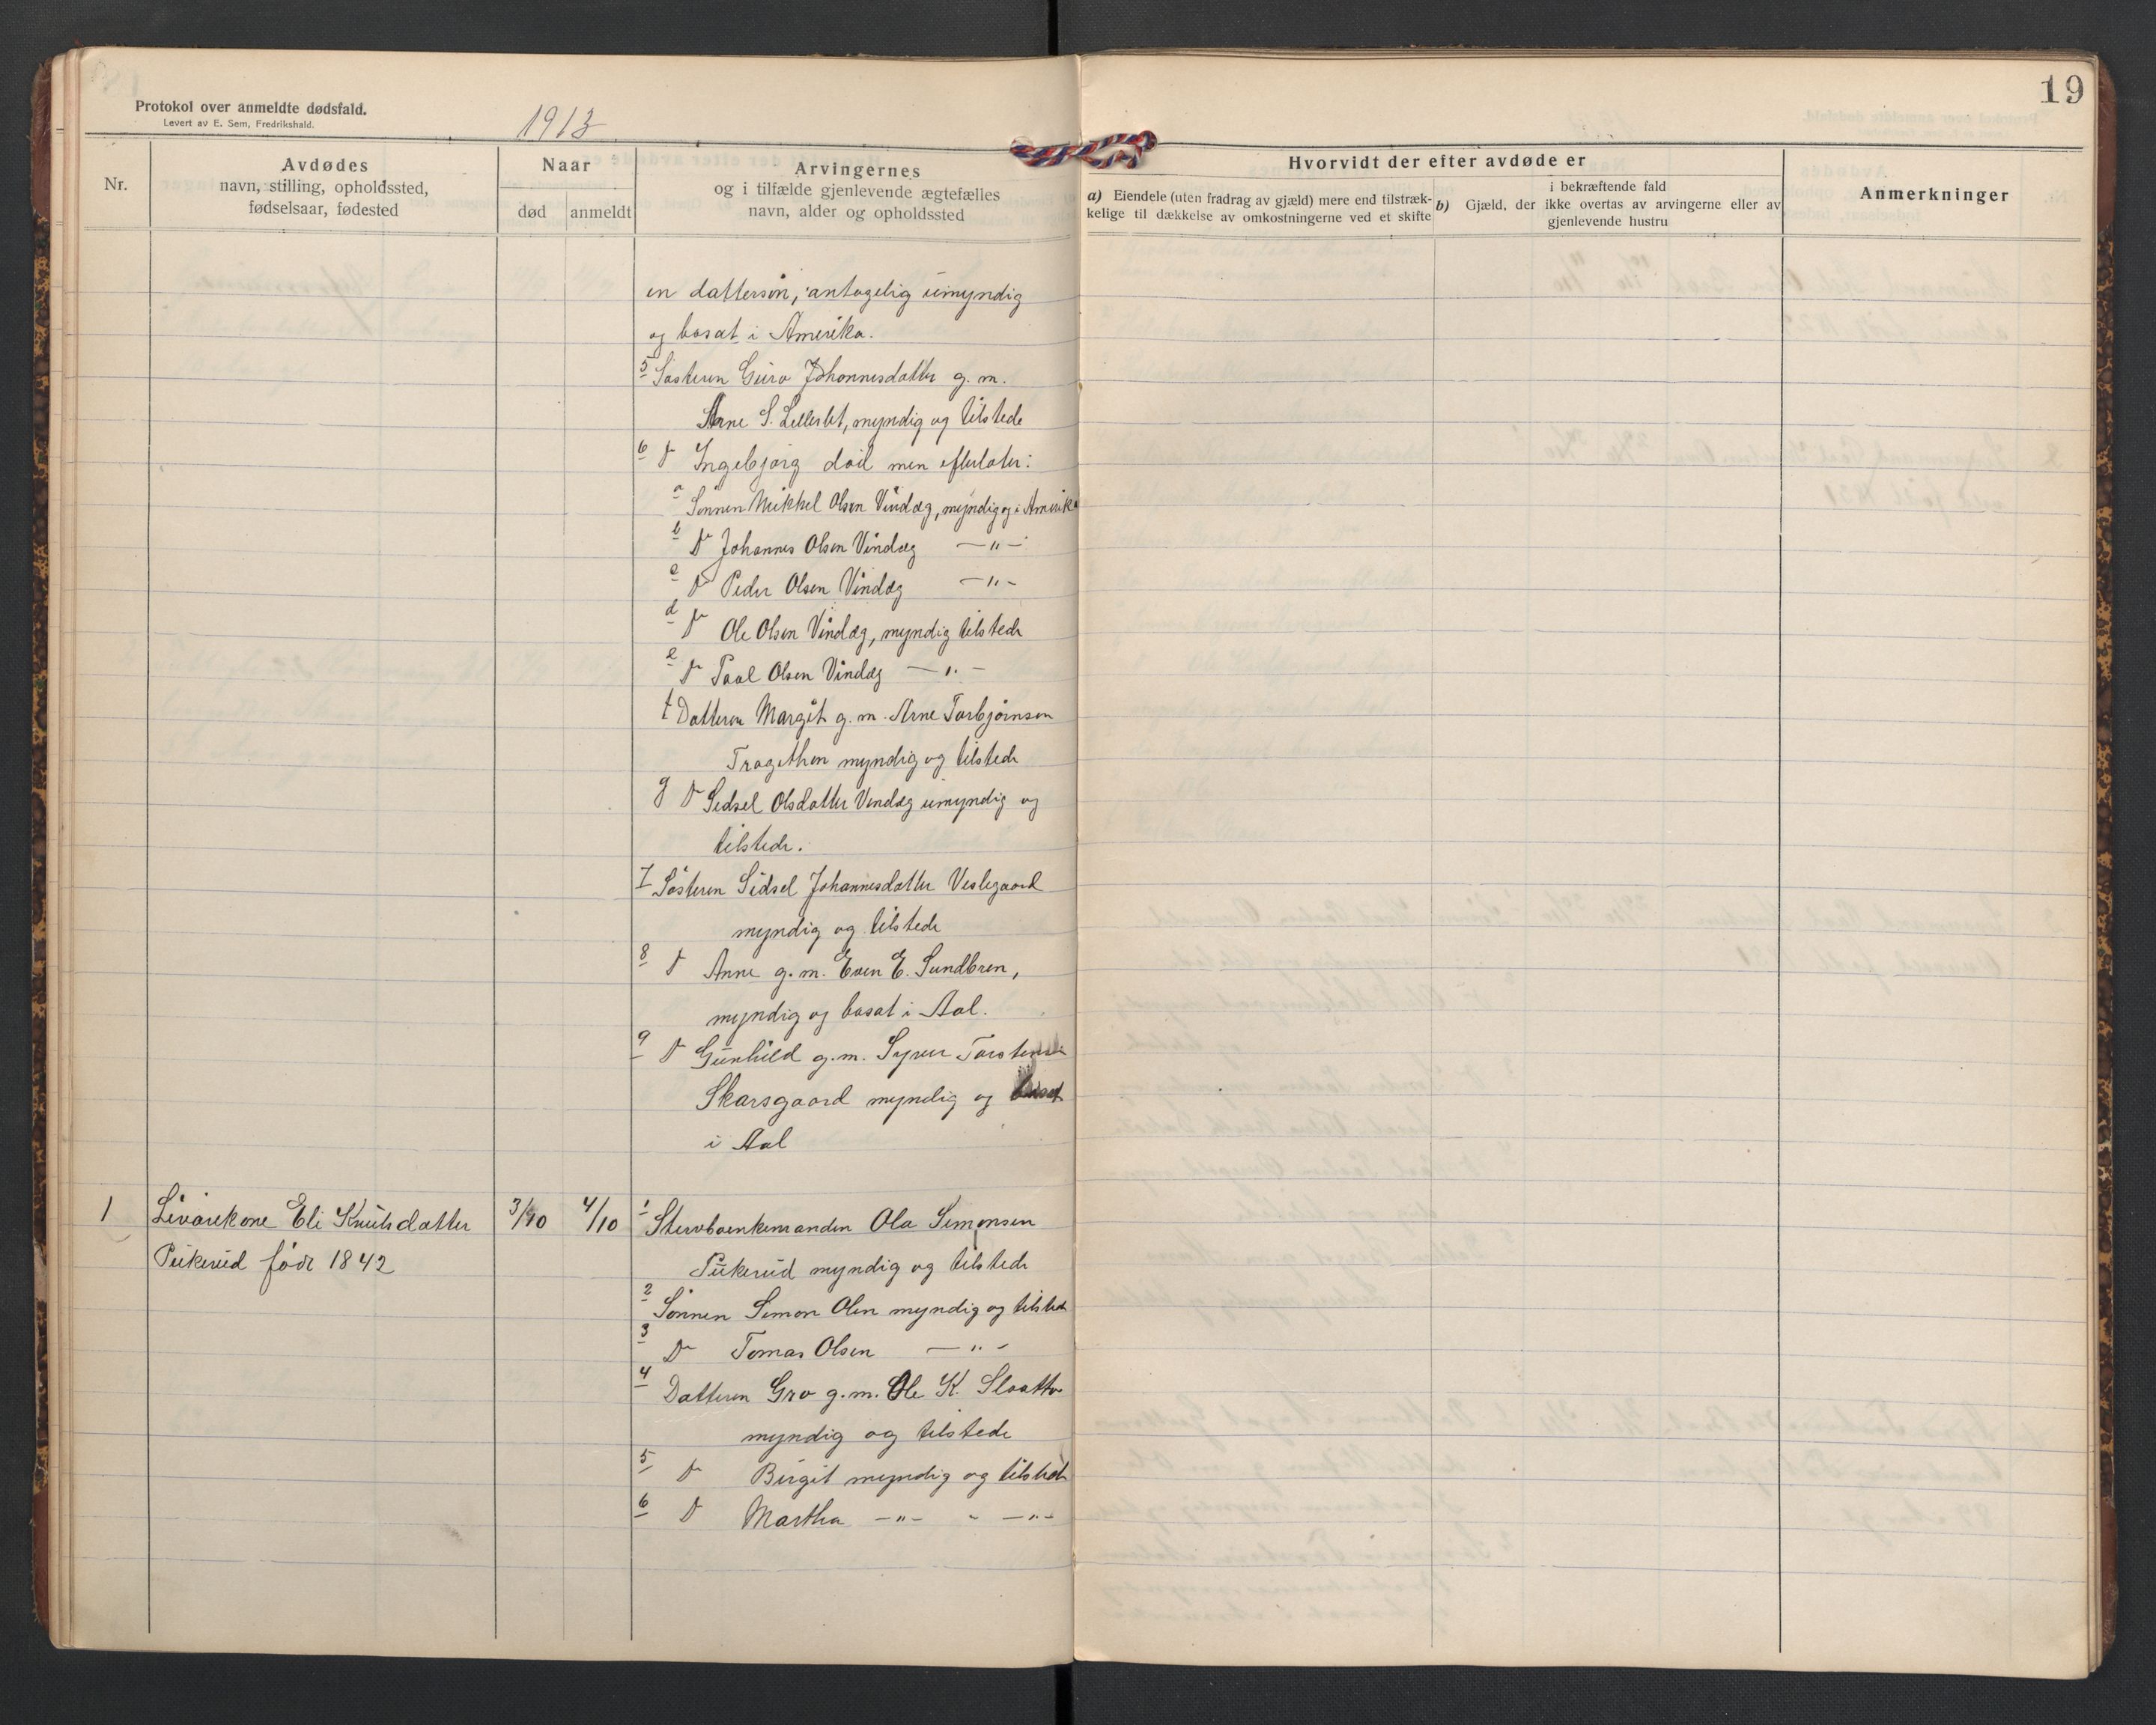 Protokol over anmeldte dødsfald.
Levert av E. Sem, Fredrikshald.
1913
19
Nr.
Avdødes
navn, stilling, opholdssted,
fødselsaar, fødested
Naar
død
anmeldt
Arvingernes
og i tilfælde gjenlevende ægtefælles
navn, alder og opholdssted
Hvorvidt der efter avdøde er
a) Eiendele (uten fradrag av gjæld) mere end tilstræk-
kelige til dækkelse av omkostningerne ved et skifte
i bekræftende fald
b) Gjæld, der ikke overtas av arvingerne eller av
gjenlevende hustru
Anmerkninger
en dattersøn, antagelig umyndig
og bosat i Amerika.
5 Søsteren Guro Johannesdatter g. m.
Arne S. myndig og tilstede
6 D Ingebjørg død men efterlater:
a Sønnen Mikkel Olsen Vindæg, myndig og i Amerika
b D Johannes Olsen Vindæg —"—
c D Peder Olsen Vindæg —"—
d D Ole Olsen Vindæg, myndig tilstede
e D Paal Olsen Vindæg —"—
f Datteren Margit g. m. Arne Torbjørnsen
Tragethon myndig og tilstede
g D Sidsel Olsdatter Vindæg umyndig og
tilstede.
7 Søsteren Sidsel Johannesdatter Veslegaard
myndig og tilstede
8 D Anne g. m. Even E. Sundbren,
myndig og bosat i Aal.
9 D Gunhild g. m. Syver Torstensen
Skarsgaard myndig og bosat
i Aal
1 Livørekone Eli Knutsdatter 3/10 4/10 1 Stervboenkemanden Ola Simonsen
Pukerud født 1842 Pukerud myndig og tilstede
2 Sønnen Simon Olsen myndig og tilstede
3 D Tomas Olsen —"—
4 Datteren Gro g. m. Ole K. Slaatto
myndig og tilstede
5 D Birgit myndig og tilstede
6 D Martha —"— " —"—